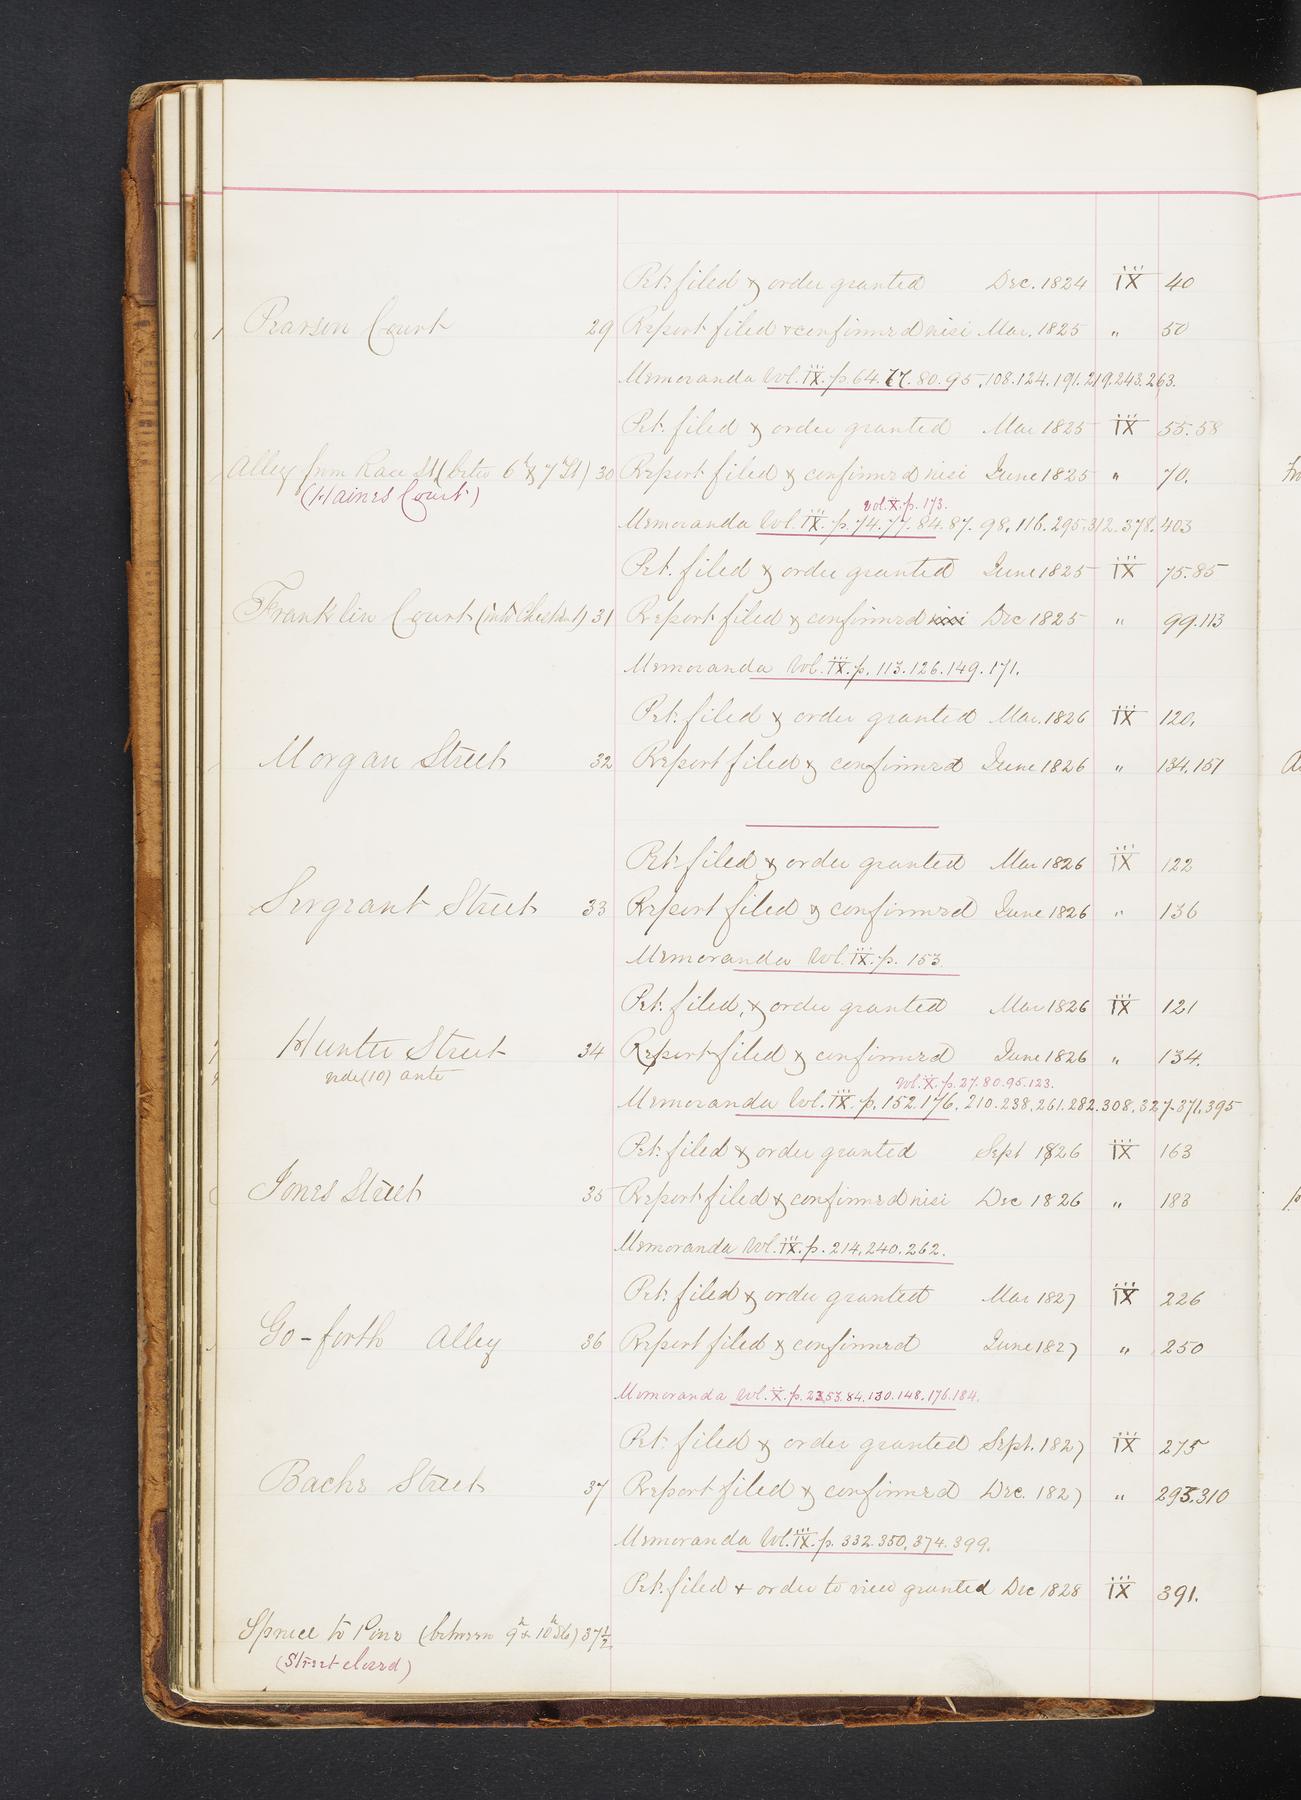 Pet. filed & order granted Dec. 1824 IX 40
Pearson Court 29 Report filed & confirmed nisi Mar. 1825 " 50
Memoranda Vol. IX. p. 64. 77. 80. 95. 108. 124. 191. 219. 243. 263.
Pet. filed & order granted Mar 1825 IX 55. 58
Alley from Race St (betw 6th & 7th St) 30 Report filed & confirmed nisi June 1825 " 70.
(Haines Court)
Vol. X. p. 173.
Memoranda Vol. IX. p. 74. 77. 84. 87. 98. 116. 295. 312. 378. 403
Pet. filed & order granted June 1825 IX 75. 85
Franklin Court (into Chestnut) 31 Report filed & confirmed nisi Dec 1825 " 99. 113
Memoranda Vol. IX. p. 113. 126. 149. 171.
Pet. filed & order granted Mar. 1826 IX 120.
Morgan Street 32 Report filed & confirmed June 1826 " 134. 151
Pet. filed & order granted Mar 1826 IX 122
Sergeant Street 33 Report filed & confirmed June 1826 " 136
Memoranda Vol. IX. p. 153.
Pet. filed, & order granted Mar 1826 IX 121
Hunter Street 34 Report filed & confirmed June 1826 " 134.
vide (10) ante
Vol. X. p. 27. 80. 95. 123.
Memoranda Vol. IX. p. 152. 176. 210. 238. 261. 282. 308. 327. 371. 395
Pet. filed & order granted Sept 1826 IX 163
Jones Street 35 Report filed & confirmed nisi Dec 1826 " 183
Memoranda Vol. IX. p. 214. 240. 262.
Pet. filed & order granted Mar 1827 IX 226
Go-forth Alley 36 Report filed & confirmed June 1827 " 250
Memoranda Vol. X. p. 23. 53. 84. 130. 148. 176. 184.
Pet. filed & order granted Sept. 1827 IX 275
Bache Street 37 Report filed & confirmed Dec. 1827 " 293. 310
Memoranda Vol. IX. p. 332. 350. 374. 399.
Pet. filed + order to view granted Dec 1828 IX 391.
Spruce to Pine (between 9th & 10th Sts) 37½
(Street closed)